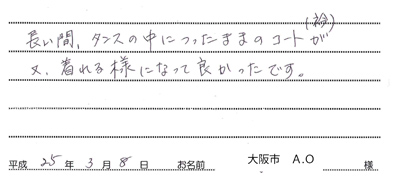 長い間、タンスの中につったままのコート(袷)が
又、着れる様になって良かったです。
平成 25 年 3 月 8 日 お名前 大阪市 A.O 様